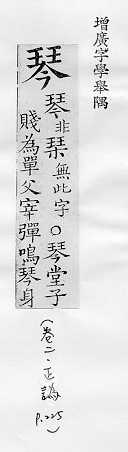 增廣字學舉隅
琴
琴非琹無此字○琴堂子
賤為單父宰彈鳴琴身
(卷二·正譌
P.225)